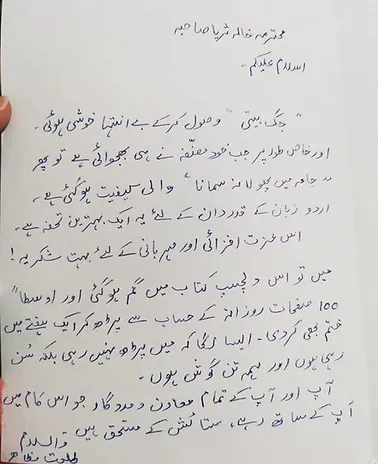 محترمہ خالہ ثریا صاحبہ
اسلام علیکم۔
"جگ بیتی" وصول کرکے بے انتہا خوشی ہوئی۔
اور خاص طور پر جب خود مصنّفہ نے ہی بھجوائی ہے تو پھر
"جامہ میں پھولا نہ سمانا" والی کیفیت ہوگئی ہے۔
اردو زبان کے قدردان کے لئے یہ ایک بہترین تحفہ ہے۔
اس عزت افزائی اور مہربانی کے لئے بہت شکریہ!
میں تو اس دلچسپ کتاب میں گم ہوگئی اور اوسطاً
100 صفحات روزانہ کے حساب سے پڑھ کر ایک ہفتے میں
ختم بھی کردی۔ ایسا لگا کہ میں پڑھ نہیں رہی بلکہ سُن
رہی ہوں اور ہمہ تن گوش ہوں۔
آپ اور آپ کے تمام معاون و مددگار جو اس کام میں
آپ کے ساتھ رہے، ستائش کے مستحق ہیں
والسلام
طلعت